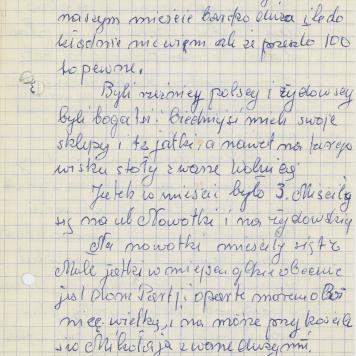 naszym mieście bardzo duża ile do
kładnie nie wiem ale że przeszło 100
to pewne.
Byli rzeźnicy polscy i żydowscy
byli bogatsi i biedniejsi mieli swoje
sklepy i tz jatki, a nawet na targo
wisku stoły zwane
Jatek w mieście było 3. Mieściły
się na ul Nowotki i na żydowskiej
Na nowotki mieściły się tz
Małe jatki w miejscu gdzie obecnie
jest Dom Partji, oparte
wielką, i na przy kościele
św Mikołaja zwane dużymi.